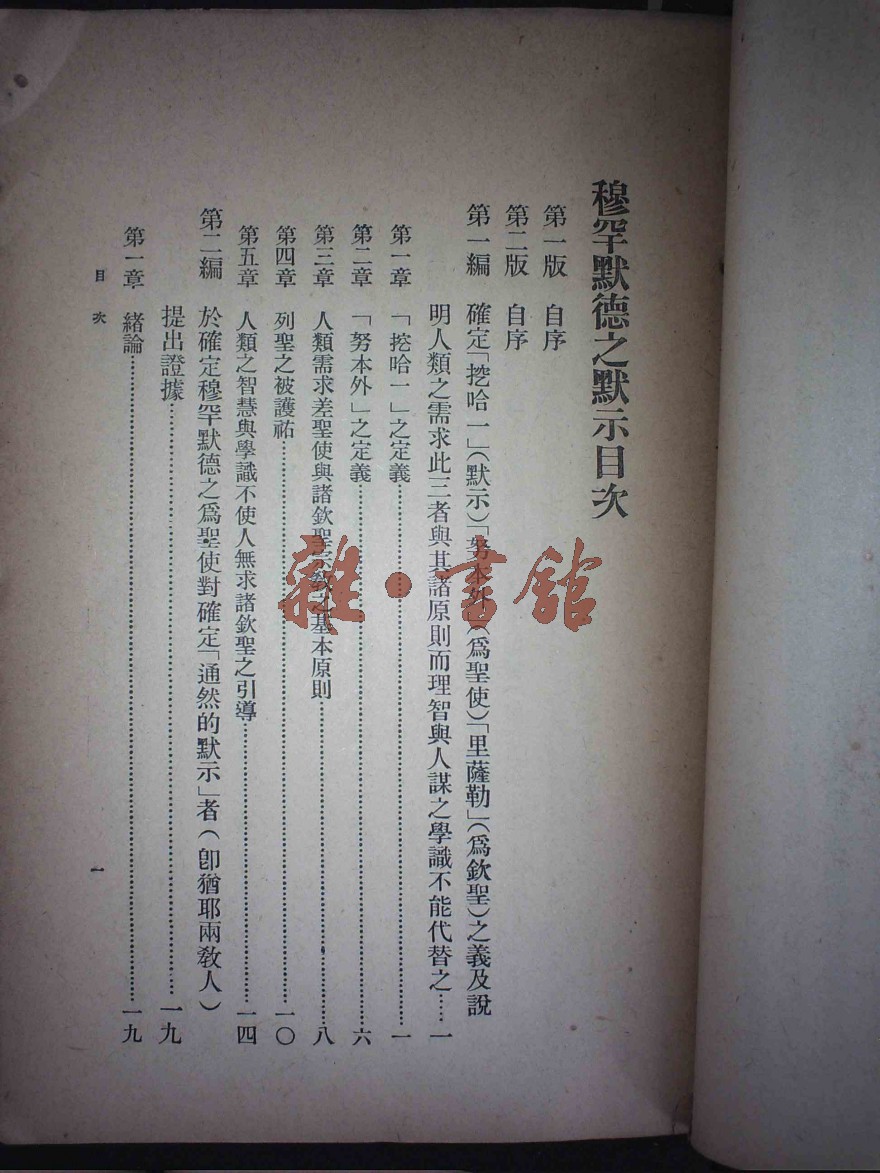 穆罕默德之默示目次
第一版　自序
第二版　自序
第一編　確定「挖哈一」(默示)「努本外」(爲聖使)「里薩勒」(爲欽聖)之義及說
明人類之需求此三者與其諸原則而理智與人謀之學識不能代替之……一
第一章　「挖哈一」之定義……一
第二章　「努本外」之定義……六
第三章　人類需求差聖使與諸欽聖宗教之基本原則……八
第四章　列聖之被護祐……一〇
第五章　人類之智慧與學識不使人無求諸欽聖之引導……一四
第二編　於確定穆罕默德之爲聖使對確定「通然的默示」者(卽猶耶兩教人)
提出證據……一九
第一章　緒論……一九
目次　一
雜·書館